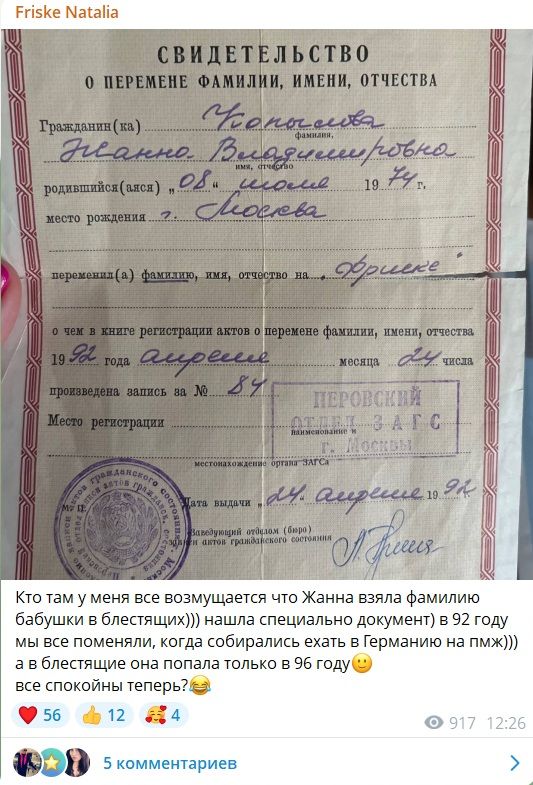 Friske Natalia
СВИДЕТЕЛЬСТВО
О ПЕРЕМЕНЕ ФАМИЛИИ, ИМЕНИ, ОТЧЕСТВА
Гражданин(ка) Копылова
фамилия,
Жанна Владимировна
имя, отчество
родившийся(аяся) „08“ июля 1974 г.
место рождения г. Москва
переменил(а) фамилию, имя, отчество на „Фриске“
о чем в книге регистрации актов о перемене фамилии, имени, отчества
1992 года апреля месяца 24 числа
произведена запись за № 84
Место регистрации
ПЕРОВСКИЙ
ОТДЕЛ ЗАГС
г. Москвы
наименование и
местонахождение органа ЗАГСа
М. П.
Дата выдачи „24“ апреля 1992
Заведующий отделом (бюро)
записи актов гражданского состояния
Кто там у меня все возмущается что Жанна взяла фамилию
бабушки в блестящих))) нашла специально документ) в 92 году
мы все поменяли, когда собирались ехать в Германию на пмж)))
а в блестящие она попала только в 96 году🙂
все спокойны теперь?😂
❤️ 56 👍 12 🥰 4
917 12:26
5 комментариев